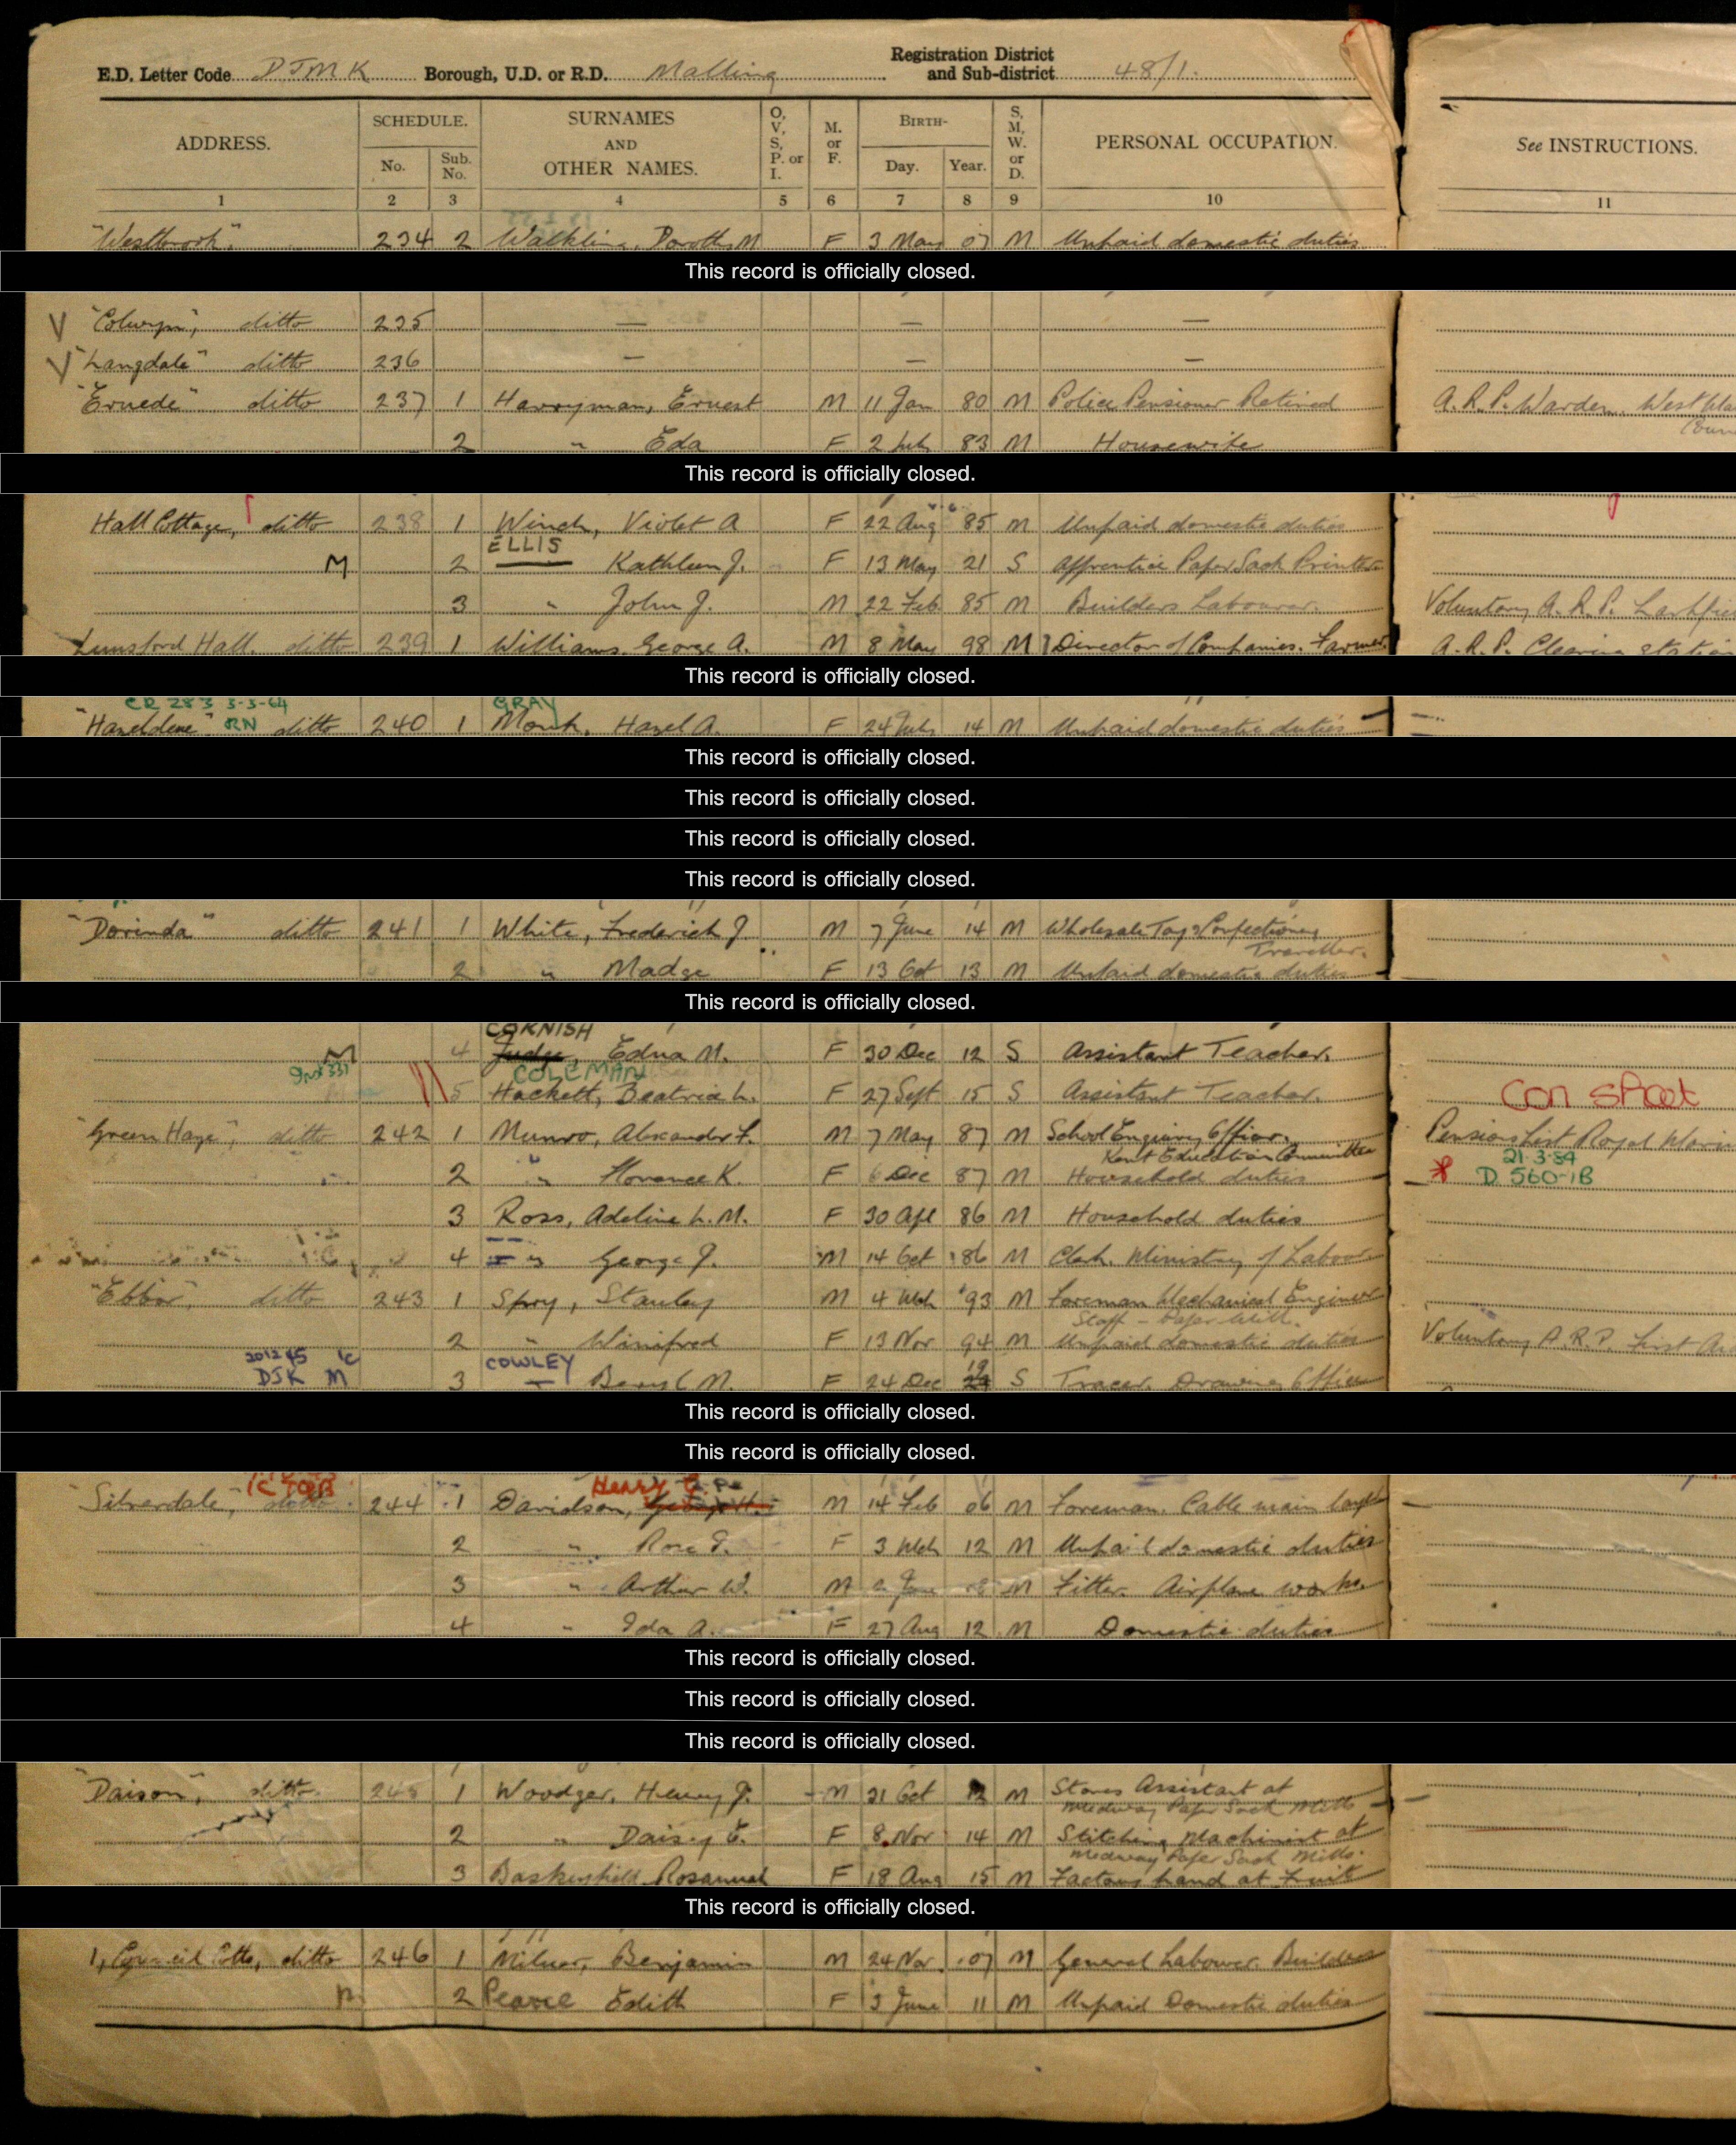 E.D. Letter Code DJMK Borough, U.D. or R.D. Malling Registration District and Sub-district 48/1.
ADDRESS. SCHEDULE. No. Sub. No. SURNAMES AND OTHER NAMES. O, V, S, P. or I. M. or F. BIRTH- Day. Year. S, M, W. or D. PERSONAL OCCUPATION. See INSTRUCTIONS.
1 2 3 4 5 6 7 8 9 10 11
"Westbrook" 234 2 Walkling, Dorothy M F 3 May 07 M Unpaid domestic duties
This record is officially closed.
V "Colwyn", ditto 235 — — —
V "Langdale" ditto 236 — — —
"Ernede" ditto 237 1 Harryman, Ernest M 11 Jan 80 M Police Pensioner Retired A.R.P. Warden. West
2 " Eda F 2 July 83 M Housewife
This record is officially closed.
Hall Cottage, ditto 238 1 Winch, Violet A F 22 Aug 85 M Unpaid domestic duties
ELLIS
M 2 — Kathleen J. F 13 May 21 S Apprentice Paper Sack Printer
3 " John J. M 22 Feb 85 M Builders Labourer. Voluntary A.R.P.
Lunsford Hall, ditto 239 1 Williams, George A. M 8 May 98 M Director of Companies. Farmer A.R.P. Clearing Station
This record is officially closed.
CR 283 3-3-64 GRAY
"Hazeldene" RN ditto 240 1 Monk, Hazel A. F 24 July 14 M Unpaid domestic duties
This record is officially closed.
This record is officially closed.
This record is officially closed.
This record is officially closed.
"Dorinda" ditto 241 1 White, Frederick J. M 7 June 14 M Wholesale Toy & Confectionery
Traveller.
2 " Madge F 13 Oct 13 M Unpaid domestic duties
This record is officially closed.
CORNISH
M 4 Judge, Edna M. F 30 Dec 12 S Assistant Teacher.
COLEMAN
5 Hackett, Beatrice L. F 27 Sept 15 S Assistant Teacher. Con sheet
"Green Haye", ditto 242 1 Munro, Alexander F. M 7 May 87 M School Enquiry Officer. Pension List Royal
Kent Education Committee 21-3-84
2 " Florence K. F 6 Dec 87 M Household duties * D 560-1B
3 Ross, Adeline L. M. F 30 Apl 86 M Household duties
4 " George J. M 14 Oct 86 M Clerk. Ministry of Labour
"Ebbor", ditto 243 1 Spry, Stanley M 4 Mch 93 M Foreman Mechanical Engineer
Staff - Paper Mill.
2 " Winifred F 13 Nov 94 M Unpaid domestic duties Voluntary A.R.P. First Aid
201245 COWLEY 19
DJK M 3 — Beryl M. F 24 Dec S Tracer, Drawing Office
This record is officially closed.
This record is officially closed.
Henry
"Silverdale", ditto 244 1 Davidson, M 14 Feb 06 M Foreman. Cable main
2 " Rose F 3 Mch 12 M Unpaid domestic duties
3 " Arthur W. M June M Fitter. Airplane works.
4 " Ida A. F 27 Aug 12 M Domestic duties
This record is officially closed.
This record is officially closed.
This record is officially closed.
"Daison", ditto 245 1 Woodger, Henry J. M 21 Oct M Stores Assistant at
Medway Paper Sack Mills
2 " Daisy E. F 8 Nov 14 M Stitching Machinist at
Medway Paper Sack Mills.
3 Baskerfield, Rosannah F 18 Aug 15 M Factory hand at Fruit
This record is officially closed.
1, Council Cotts, ditto 246 1 Milner, Benjamin M 24 Nov 07 M General Labourer. Builders
2 Pearce Edith F 3 June 11 M Unpaid Domestic duties